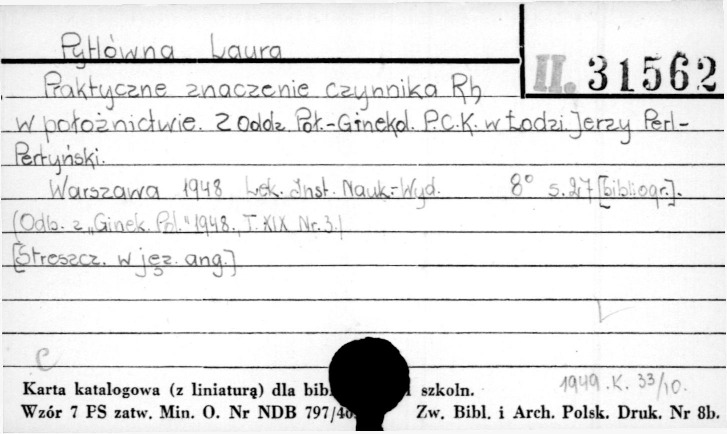 Pytlówna Laura
II. 31562
Praktyczne znaczenie czynnika Rh
w położnictwie. Z Oddz. Poł.-Ginekol. P.C.K. w Łodzi. Jerzy Perl-
Pertyński.
Warszawa 1948 Lek. Inst. Nauk.-Wyd. 8° s. 27 [bibliogr.].
(Odb. z „Ginek. Pol." 1948., T. XIX Nr. 3.)
[Streszcz. w jęz. ang.]
C
1949. K. 33/10.
Karta katalogowa (z liniaturą) dla szkoln.
Wzór 7 PS zatw. Min. O. Nr NDB Zw. Bibl. i Arch. Polsk. Druk. Nr 8b.